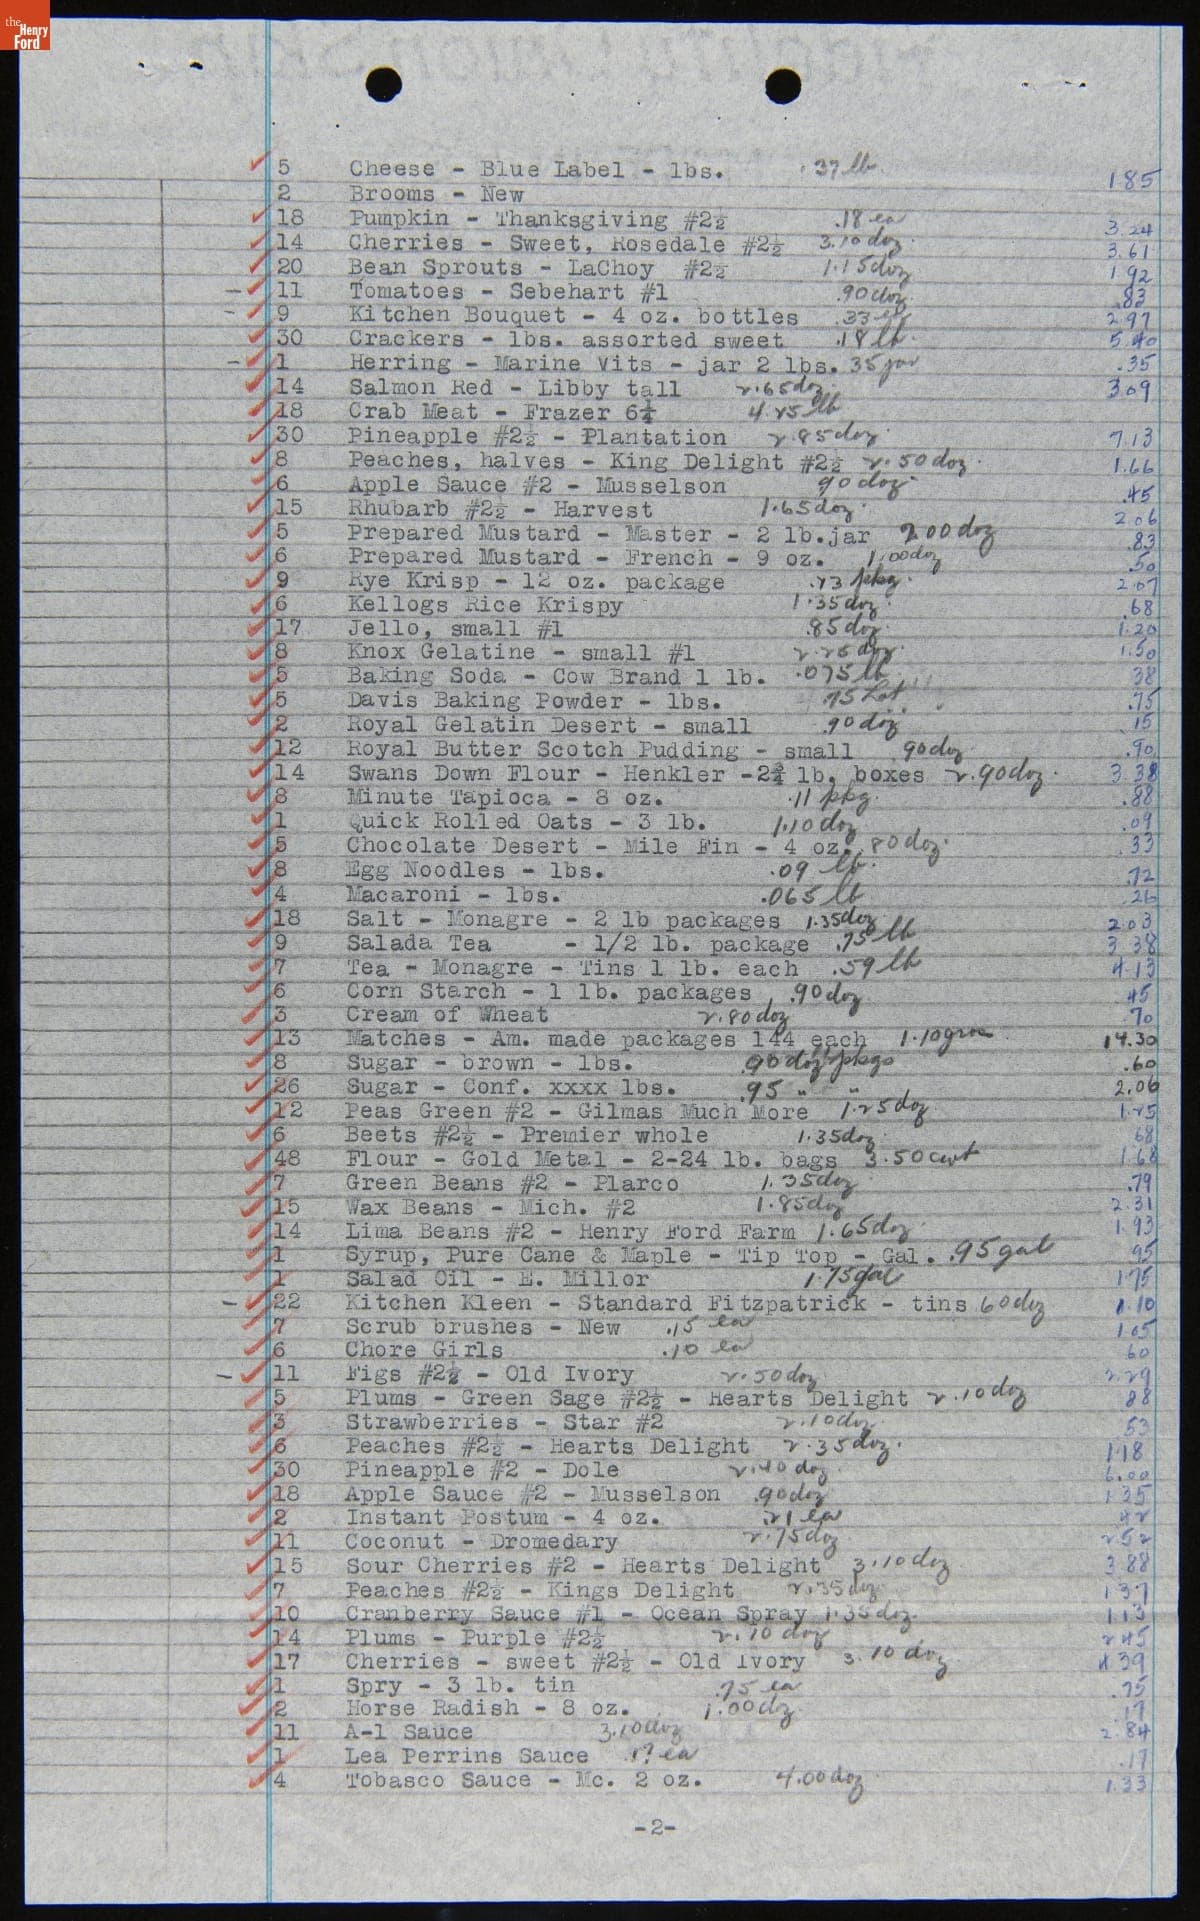 the
Henry
Ford
5 Cheese - Blue Label - lbs. .37 lb. 1.85
2 Brooms - New
18 Pumpkin - Thanksgiving #2½ .18 ea 3.24
14 Cherries - Sweet, Rosedale #2½ 3.10 doz. 3.61
20 Bean Sprouts - LaChoy #2½ 1.15 doz 1.92
11 Tomatoes - Sebehart #1 .90 doz. .83
9 Kitchen Bouquet - 4 oz. bottles .33 ea 2.97
30 Crackers - lbs. assorted sweet .18 lb. 5.40
1 Herring - Marine Vits - jar 2 lbs. 35 jar .35
14 Salmon Red - Libby tall 2.65 doz. 3.09
18 Crab Meat - Frazer 6¼ 4.25 lb
30 Pineapple #2½ - Plantation 2.85 doz. 7.13
8 Peaches, halves - King Delight #2½ 2.50 doz. 1.66
6 Apple Sauce #2 - Musselson 90 doz. .45
15 Rhubarb #2½ - Harvest 1.65 doz. 2.06
5 Prepared Mustard - Master - 2 lb. jar 2.00 doz .83
6 Prepared Mustard - French - 9 oz. 1.00 doz .50
9 Rye Krisp - 12 oz. package .23 pkg. 2.07
6 Kellogs Rice Krispy 1.35 doz. .68
17 Jello, small #1 .85 doz. 1.20
8 Knox Gelatine - small #1 2.25 doz. 1.50
5 Baking Soda - Cow Brand 1 lb. .075 lb. 38
5 Davis Baking Powder - lbs. .15 .75
2 Royal Gelatin Desert - small .90 doz. 15
12 Royal Butter Scotch Pudding - small .90 doz. .90
14 Swans Down Flour - Henkler -2¾ lb. boxes 2.90 doz. 3.38
8 Minute Tapioca - 8 oz. .11 pkg. .88
1 Quick Rolled Oats - 3 lb. 1.10 doz .09
5 Chocolate Desert - Mile Fin - 4 oz. 80 doz. .33
8 Egg Noodles - lbs. .09 lb. .72
4 Macaroni - lbs. .065 lb .26
18 Salt - Monagre - 2 lb packages 1.35 doz 2.03
9 Salada Tea - 1/2 lb. package .75 lb 3.38
7 Tea - Monagre - Tins 1 lb. each .59 lb 4.13
6 Corn Starch - 1 lb. packages .90 doz 45
3 Cream of Wheat 2.80 doz .70
13 Matches - Am. made packages 144 each 1.10 gross 14.30
8 Sugar - brown - lbs. .90 doz pkgs .60
26 Sugar - Conf. xxxx lbs. .95 " " 2.06
12 Peas Green #2 - Gilmas Much More 1.25 doz 1.25
6 Beets #2½ - Premier whole 1.35 doz. 68
48 Flour - Gold Metal - 2-24 lb. bags 3.50 cwt 1.68
7 Green Beans #2 - Plarco 1.35 doz .79
15 Wax Beans - Mich. #2 1.85 doz 2.31
14 Lima Beans #2 - Henry Ford Farm 1.65 doz. 1.93
1 Syrup, Pure Cane & Maple - Tip Top - Gal. .95 gal 95
1 Salad Oil - E. Millor 1.75 gal 1.75
22 Kitchen Kleen - Standard Fitzpatrick - tins 60 doz 1.10
7 Scrub brushes - New .15 ea 1.05
6 Chore Girls .10 ea 60
11 Figs #2½ - Old Ivory 2.50 doz 2.29
5 Plums - Green Sage #2½ - Hearts Delight 2.10 doz 88
3 Strawberries - Star #2 2.10 doz. .53
6 Peaches #2½ - Hearts Delight 2.35 doz. 1.18
30 Pineapple #2 - Dole 2.40 doz. 6.00
18 Apple Sauce #2 - Musselson .90 doz 1.35
2 Instant Postum - 4 oz. .21 ea 42
11 Coconut - Dromedary 2.75 doz 2.52
15 Sour Cherries #2 - Hearts Delight 3.10 doz. 3.88
7 Peaches #2½ - Kings Delight 2.35 doz. 1.37
10 Cranberry Sauce #1 - Ocean Spray 1.35 doz. 1.13
14 Plums - Purple #2½ 2.10 doz 2.45
17 Cherries - sweet #2½ - Old Ivory 3.10 doz. 4.39
1 Spry - 3 lb. tin .75 ea .75
2 Horse Radish - 8 oz. 1.00 dz. .17
11 A-1 Sauce 3.10 doz 2.84
1 Lea Perrins Sauce ea .17
4 Tobasco Sauce - Mc. 2 oz. 4.00 doz. 1.33
-2-